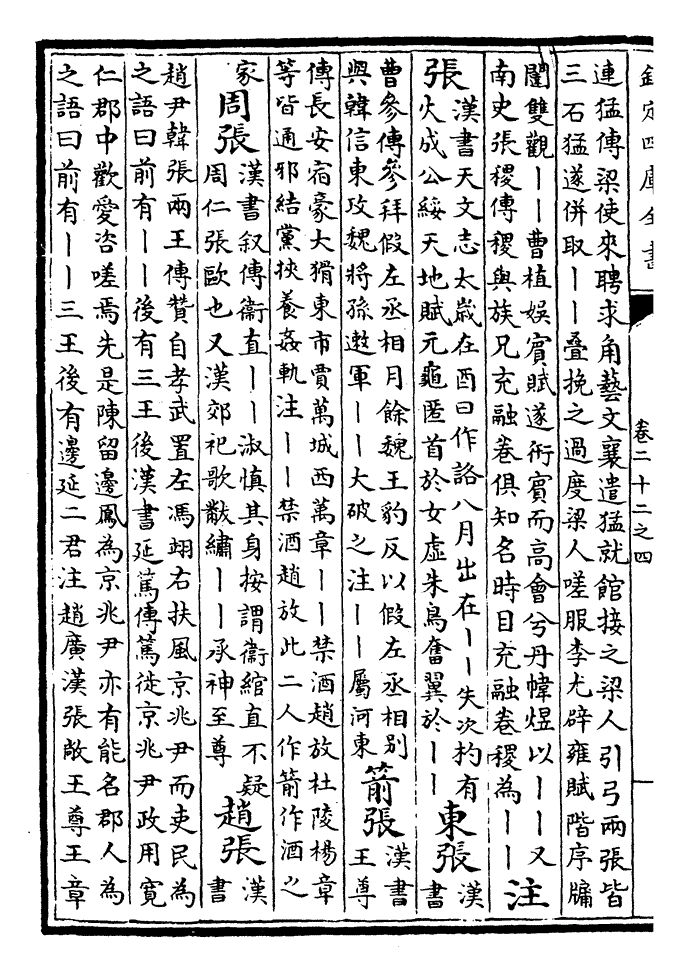 欽定四庫全書
卷二十二之四
連猛傳梁使來聘求角藝文襄遣猛就館接之梁人引弓兩張皆
三石猛遂併取丨丨叠挽之過度梁人嗟服李尤辟雍賦階序牖
闥雙觀丨丨曹植娱賓賦遂衎賓而高會兮丹幃煜以丨丨又
南史張稷傳稷與族兄充融卷俱知名時目充融卷稷為丨丨
注
張
漢書天文志太歲在酉曰作詻八月出在丨丨失次杓有
火成公綏天地賦元龜匿首於女虛朱鳥奮翼於丨丨
東張
漢
書
曹參傳參拜假左丞相月餘魏王豹反以假左丞相别
與韓信東攻魏將孫遬軍丨丨大破之注丨丨屬河東
箭張
漢書
王尊
傳長安宿豪大猾東市賈萬城西萬章丨丨禁酒趙放杜陵楊章
等皆通邪結黨挾養姦軌注丨丨禁酒趙放此二人作箭作酒之
家
周張
漢書叙傳衞直丨丨淑慎其身按謂衞綰直不疑
周仁張歐也又漢郊祀歌黻繡丨丨承神至尊
趙張
漢
書
趙尹韓張兩王傳贊自孝武置左馮翊右扶風京兆尹而吏民為
之語曰前有丨丨後有三王後漢書延篤傳篤徙京兆尹政用寛
仁郡中歡愛咨嗟焉先是陳留邊鳳為京兆尹亦有能名郡人為
之語曰前有丨丨三王後有邊延二君注趙廣漢張敞王尊王章